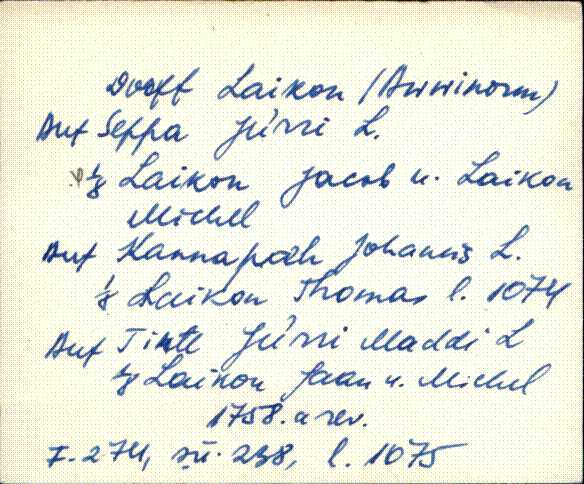 Dorff Laikon (Awwinorm)
Auf Seppa Jürri L.
1/8 Laikon Jacob u. Laikon
Michel
Auf Kannapäh Johannis L.
1/8 Laikon Thomas l. 1074
Auf Jürri Maddi L
1/8 Laikon Jaan u. Michel
1758. a rev.
F. 274, sü. 238, l. 1075